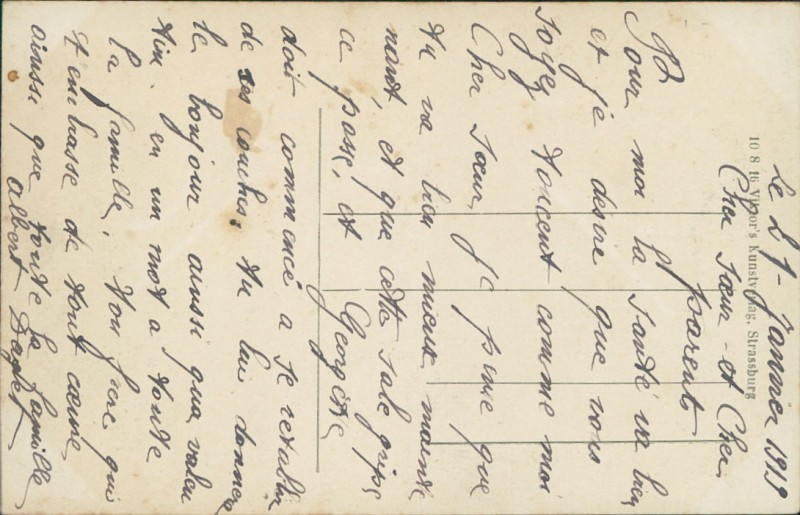 Le 27 Janvier 1919
Cher Sœur et Cher
parent,
Pour moi la santé va bien
et je désire que vous
soyez toucent comme moi
Cher Sœur, je pense que
tu va bien mieux mainte
nant, et que cette sale gripe
ce passe, et Georgette
doit commencé a se retablir
de ses couches, tu lui donnera
le bonjour aussi qua
en un mot a toute
la famille, ton frere qui
t'embrasse de tout cœur
ainssi que toute la famille
Albert
10 8 16 Viktor's Kunstverlag, Strassburg